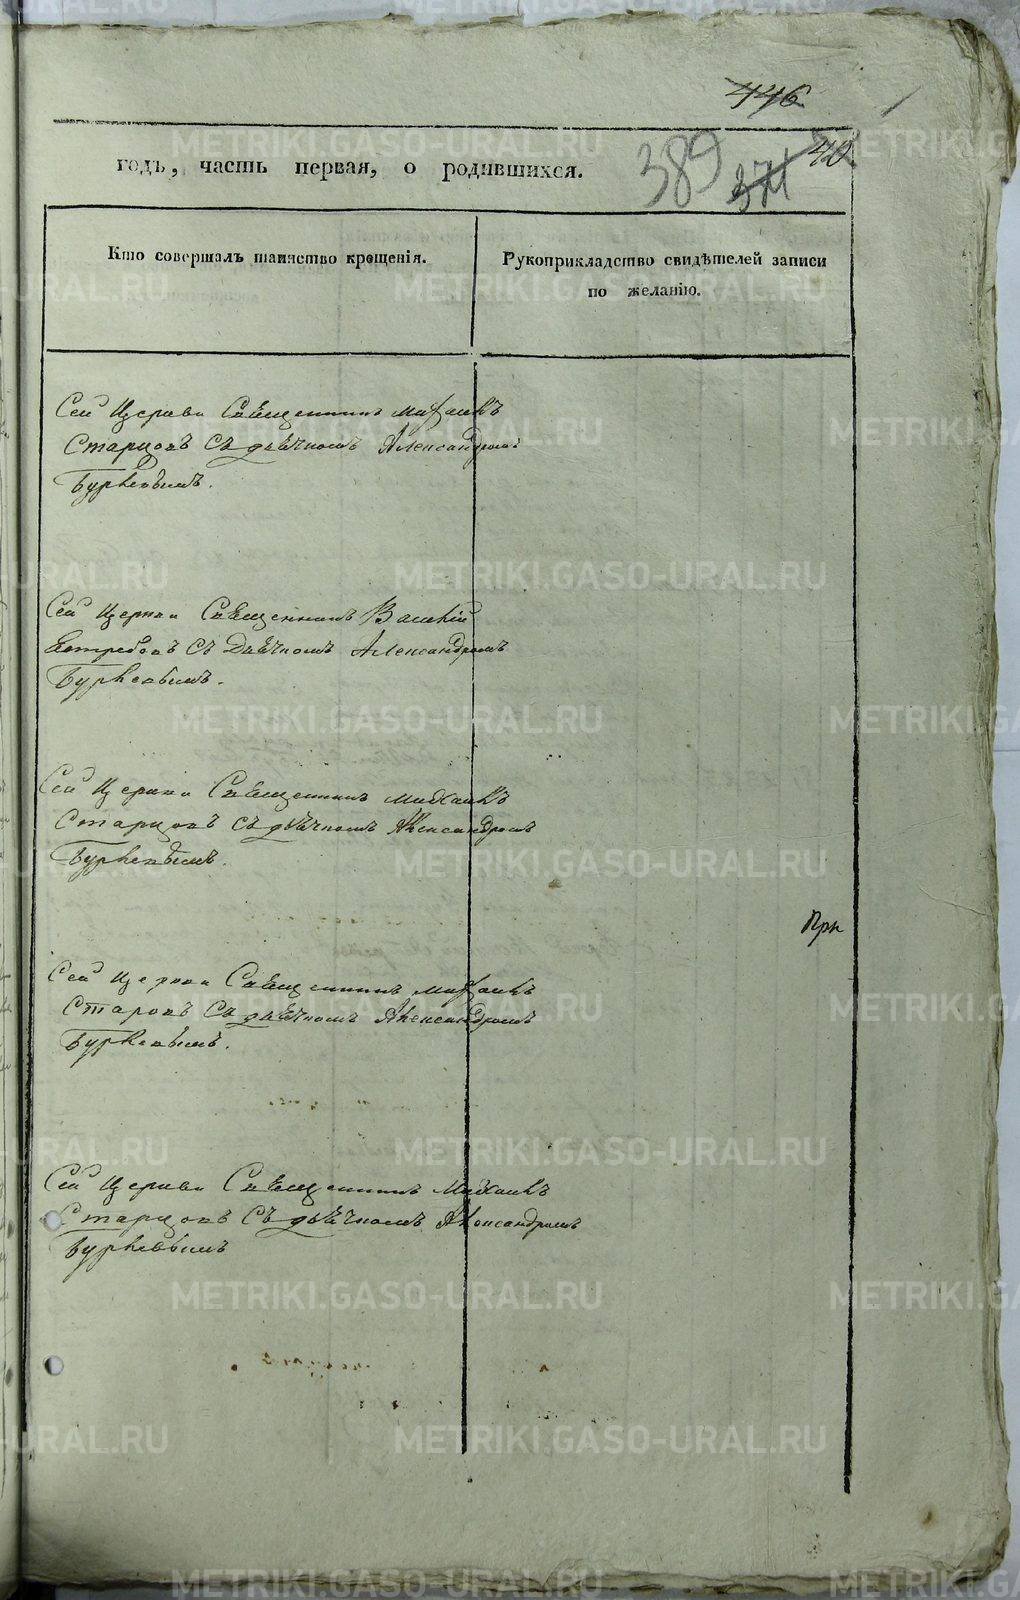 446
40
389
371
годъ, часть первая, о родившихся.
Кто совершалъ таинство крещенія.
Рукоприкладство свидѣтелей записи
по желанію.
Сей Церкви Священникъ Михаилъ
Старцовъ съ дьячкомъ Александромъ
Сей Церкви Священникъ Василій
съ Дьячкомъ Александромъ
Сей Церкви Священникъ Михаилъ
Старцовъ съ дьячкомъ Александромъ
При
Сей Церкви Священникъ Михаилъ
Старовъ съ дьячкомъ Александромъ
Сей Церкви Священникъ Михаилъ
Старцовъ съ дьячкомъ Александромъ
METRIKI.GASO-URAL.RU